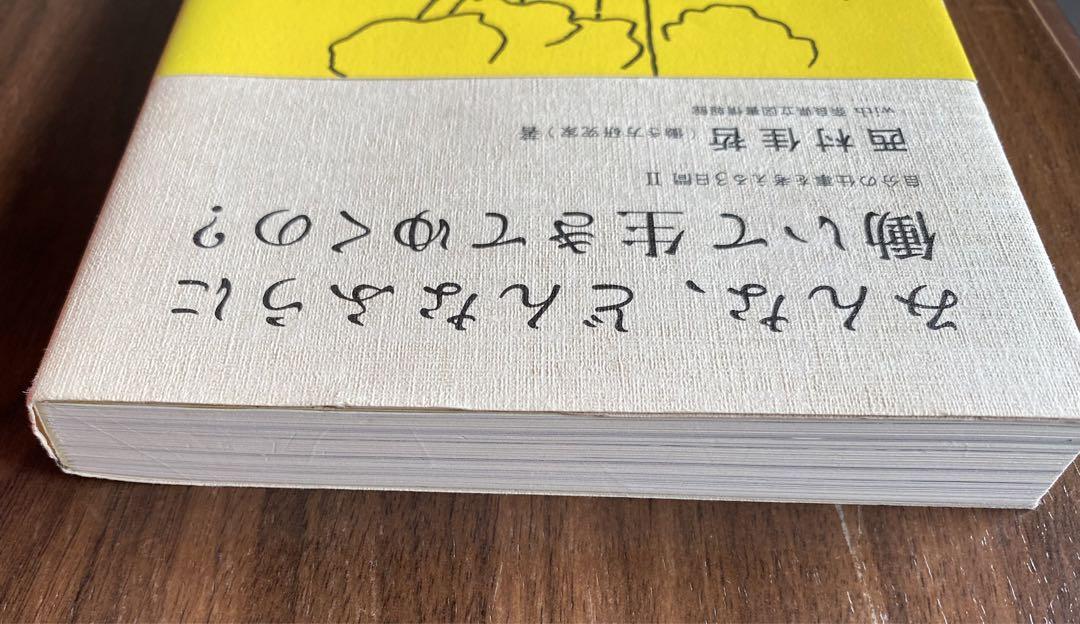 みんな、どんなふうに
働いて生きてゆくの?
自分の仕事を考える3日間 II
西村佳哲(働き方研究家)著
with 奈良県立図書情報館